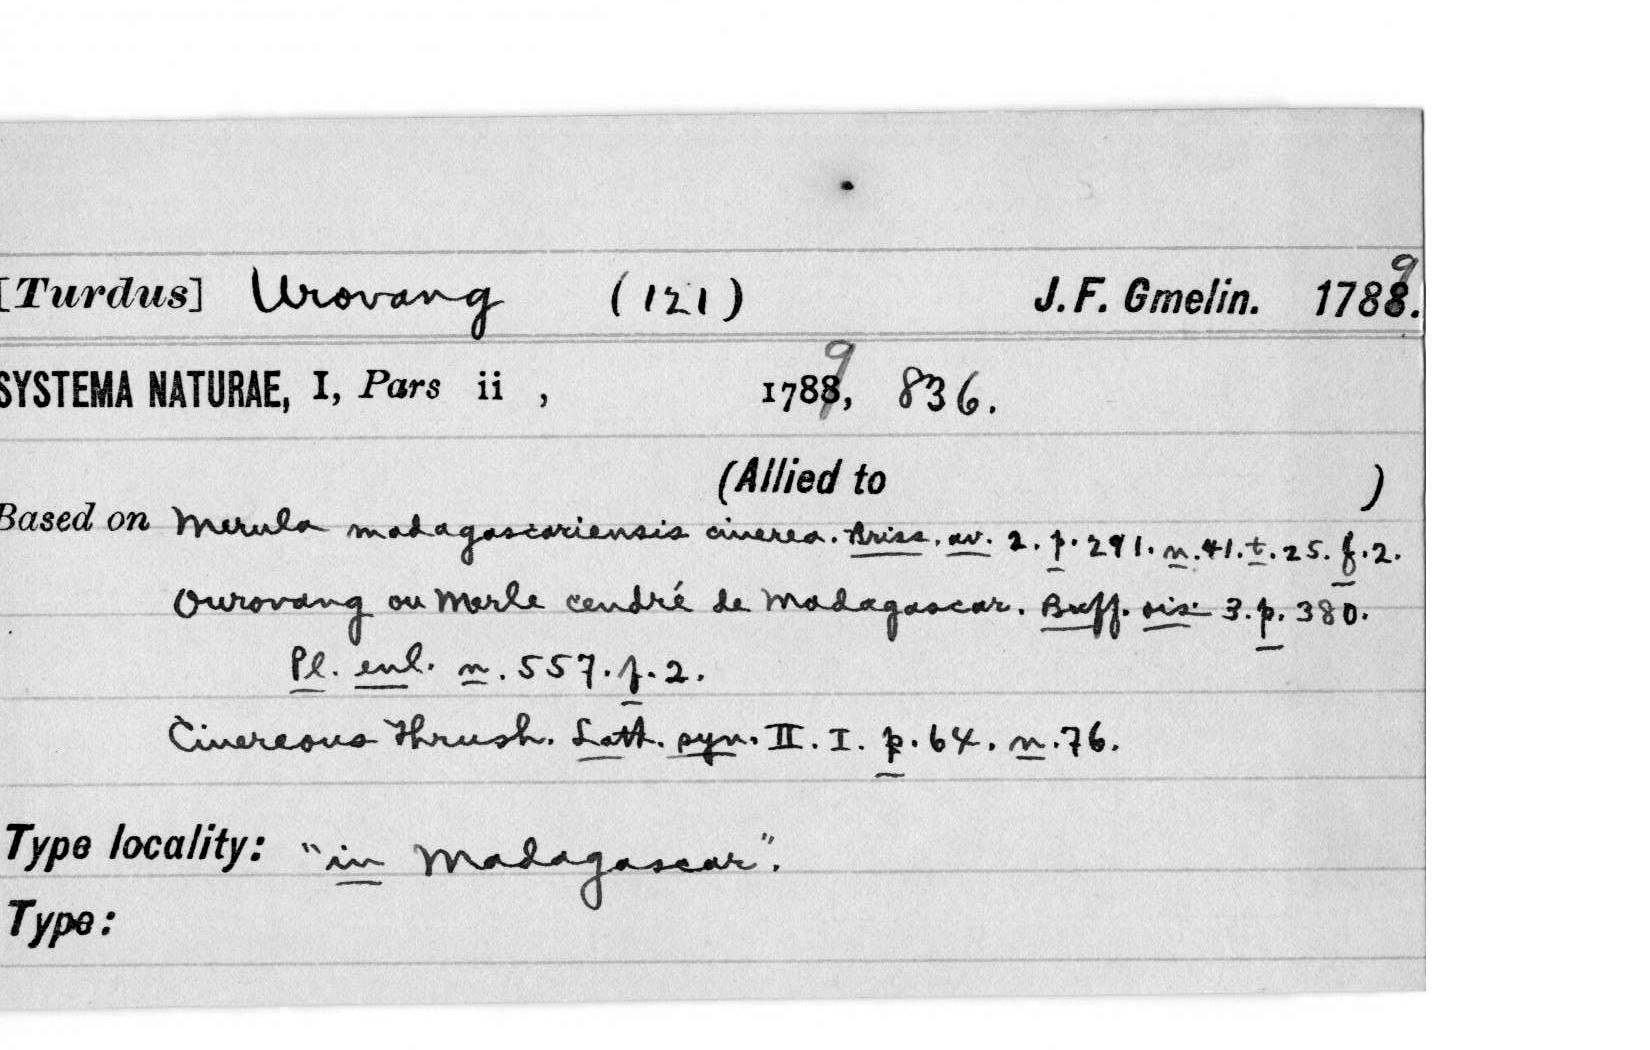 [Turdus] Urovang (121) J. F. Gmelin. 1789.
SYSTEMA NATURAE, I, Pars ii , 1789, 836.
(Allied to )
Based on Merula madagascariensis cinerea. Briss. av. 2. p. 291. n. 41. t. 25. f. 2.
Ourovang ou Merle cendré de Madagascar. Buff. ois. 3. p. 380.
Pl. enl. n. 557. f. 2.
Cinereous Thrush. Lath. syn. II. I. p. 64. n. 76.
Type locality: "in Madagascar".
Type: